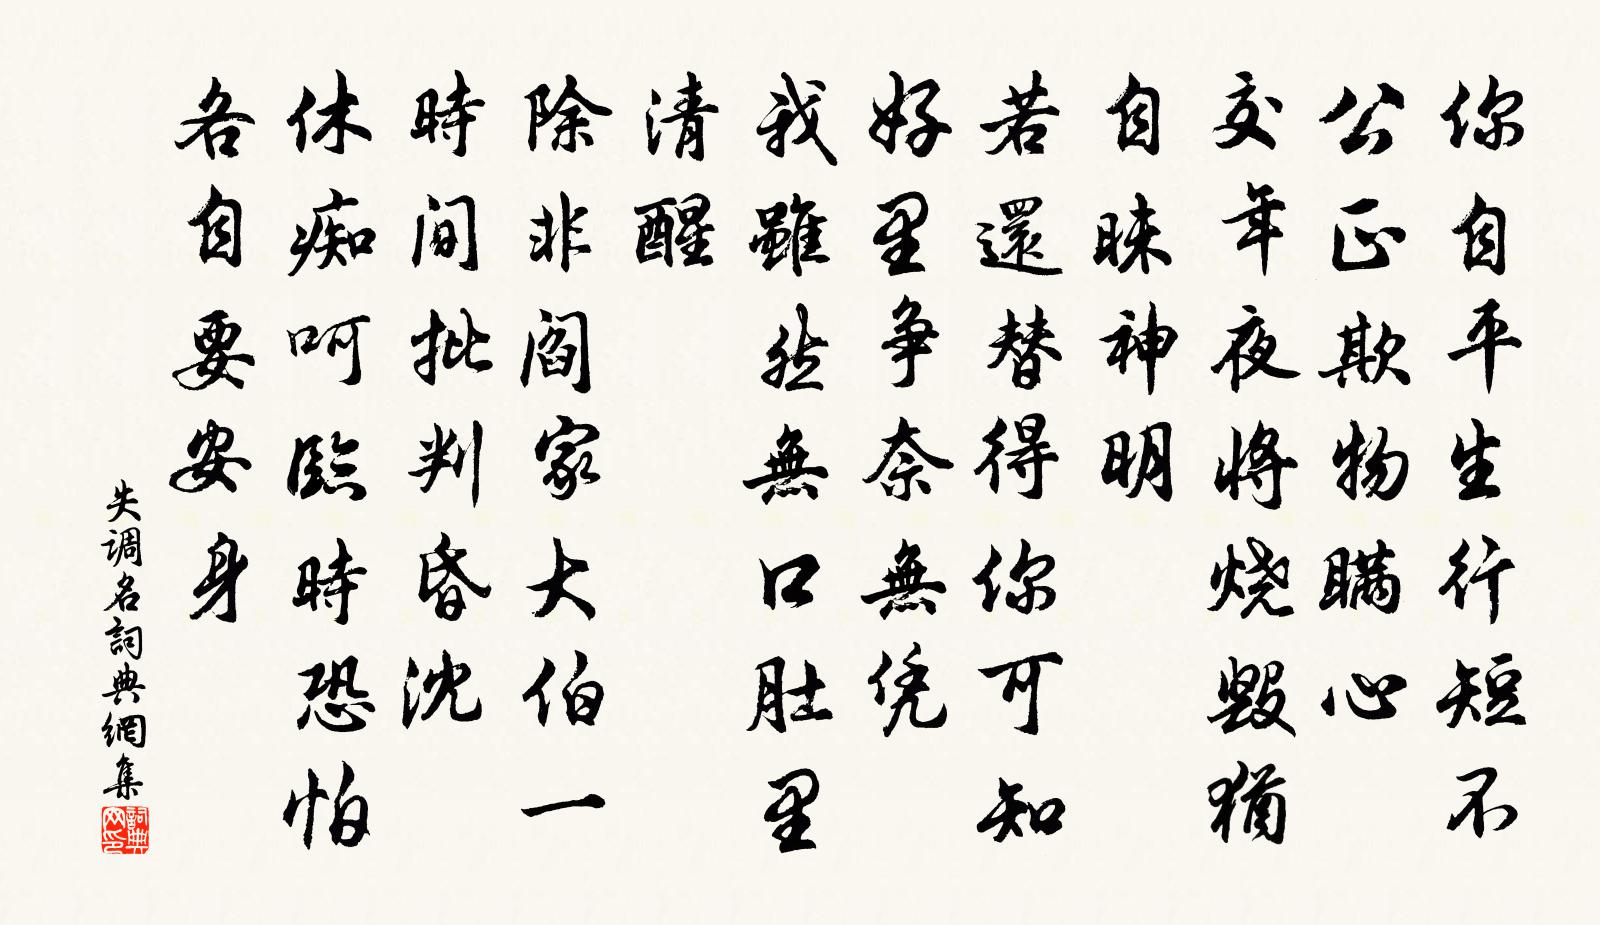 你自平生行短不
公正欺物瞒心
交年夜将烧毁犹
自昧神明
若還替得你可知
好里争奈無凭
我雖然無口肚里
清醒
除非阎家大伯一
時间批判昏沈
休痴呵臨時恐怕
各自要安身
失调名詞典網集
詞典网印